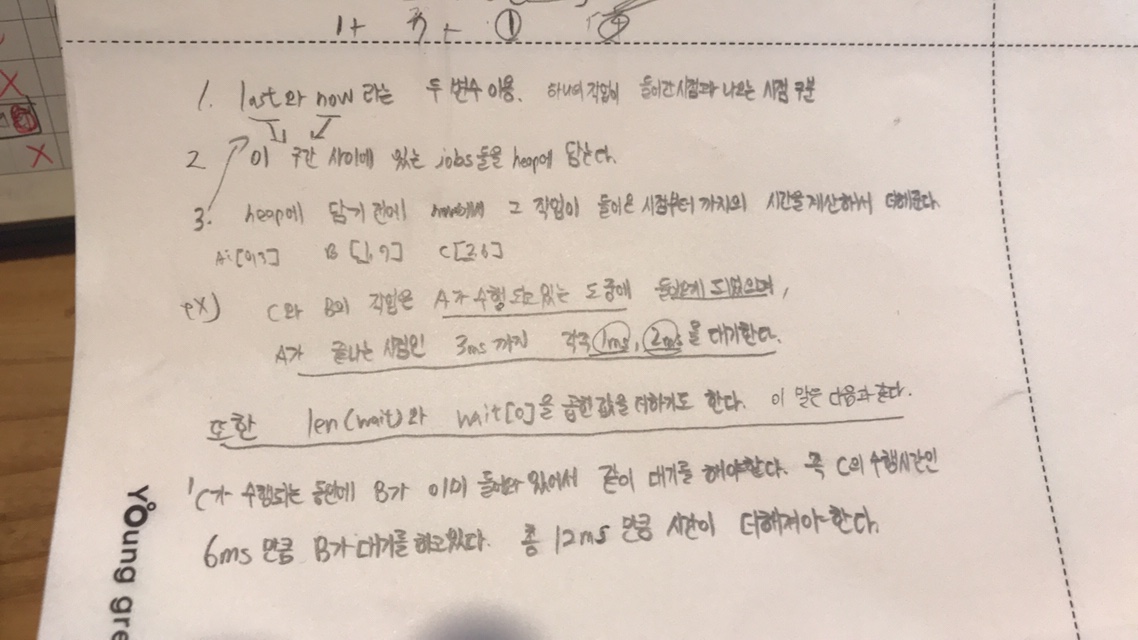 1+ 3+ ①
1. last와 now 라는 두 변수 이용. 하나의 작업이 들어간 시점과 나오는 시점 구분
2 이 구간 사이에 있는 jobs들을 heap에 담는다.
3. heap에 담기 전에 그 작업이 들어온 시점부터 까지의 시간을 계산해서 더해준다.
A:[0,3] B [1,9] C[2,6]
ex) C와 B의 작업은 A가 수행되고 있는 도중에 들어오게 되었으며,
A가 끝나는 시점인 3ms 까지 각각 1ms, 2ms을 대기한다.
또한 len(wait)와 wait[0]을 곱한 값을 더하기도 한다. 이 말은 다음과 같다.
'C가 수행되는 동안에 B가 이미 들어와 있어서 같이 대기를 해야한다. 즉 C의 수행시간인
6ms 만큼 B가 대기를 하고있다. 총 12ms 만큼 시간이 더해져야 한다.
Young gre